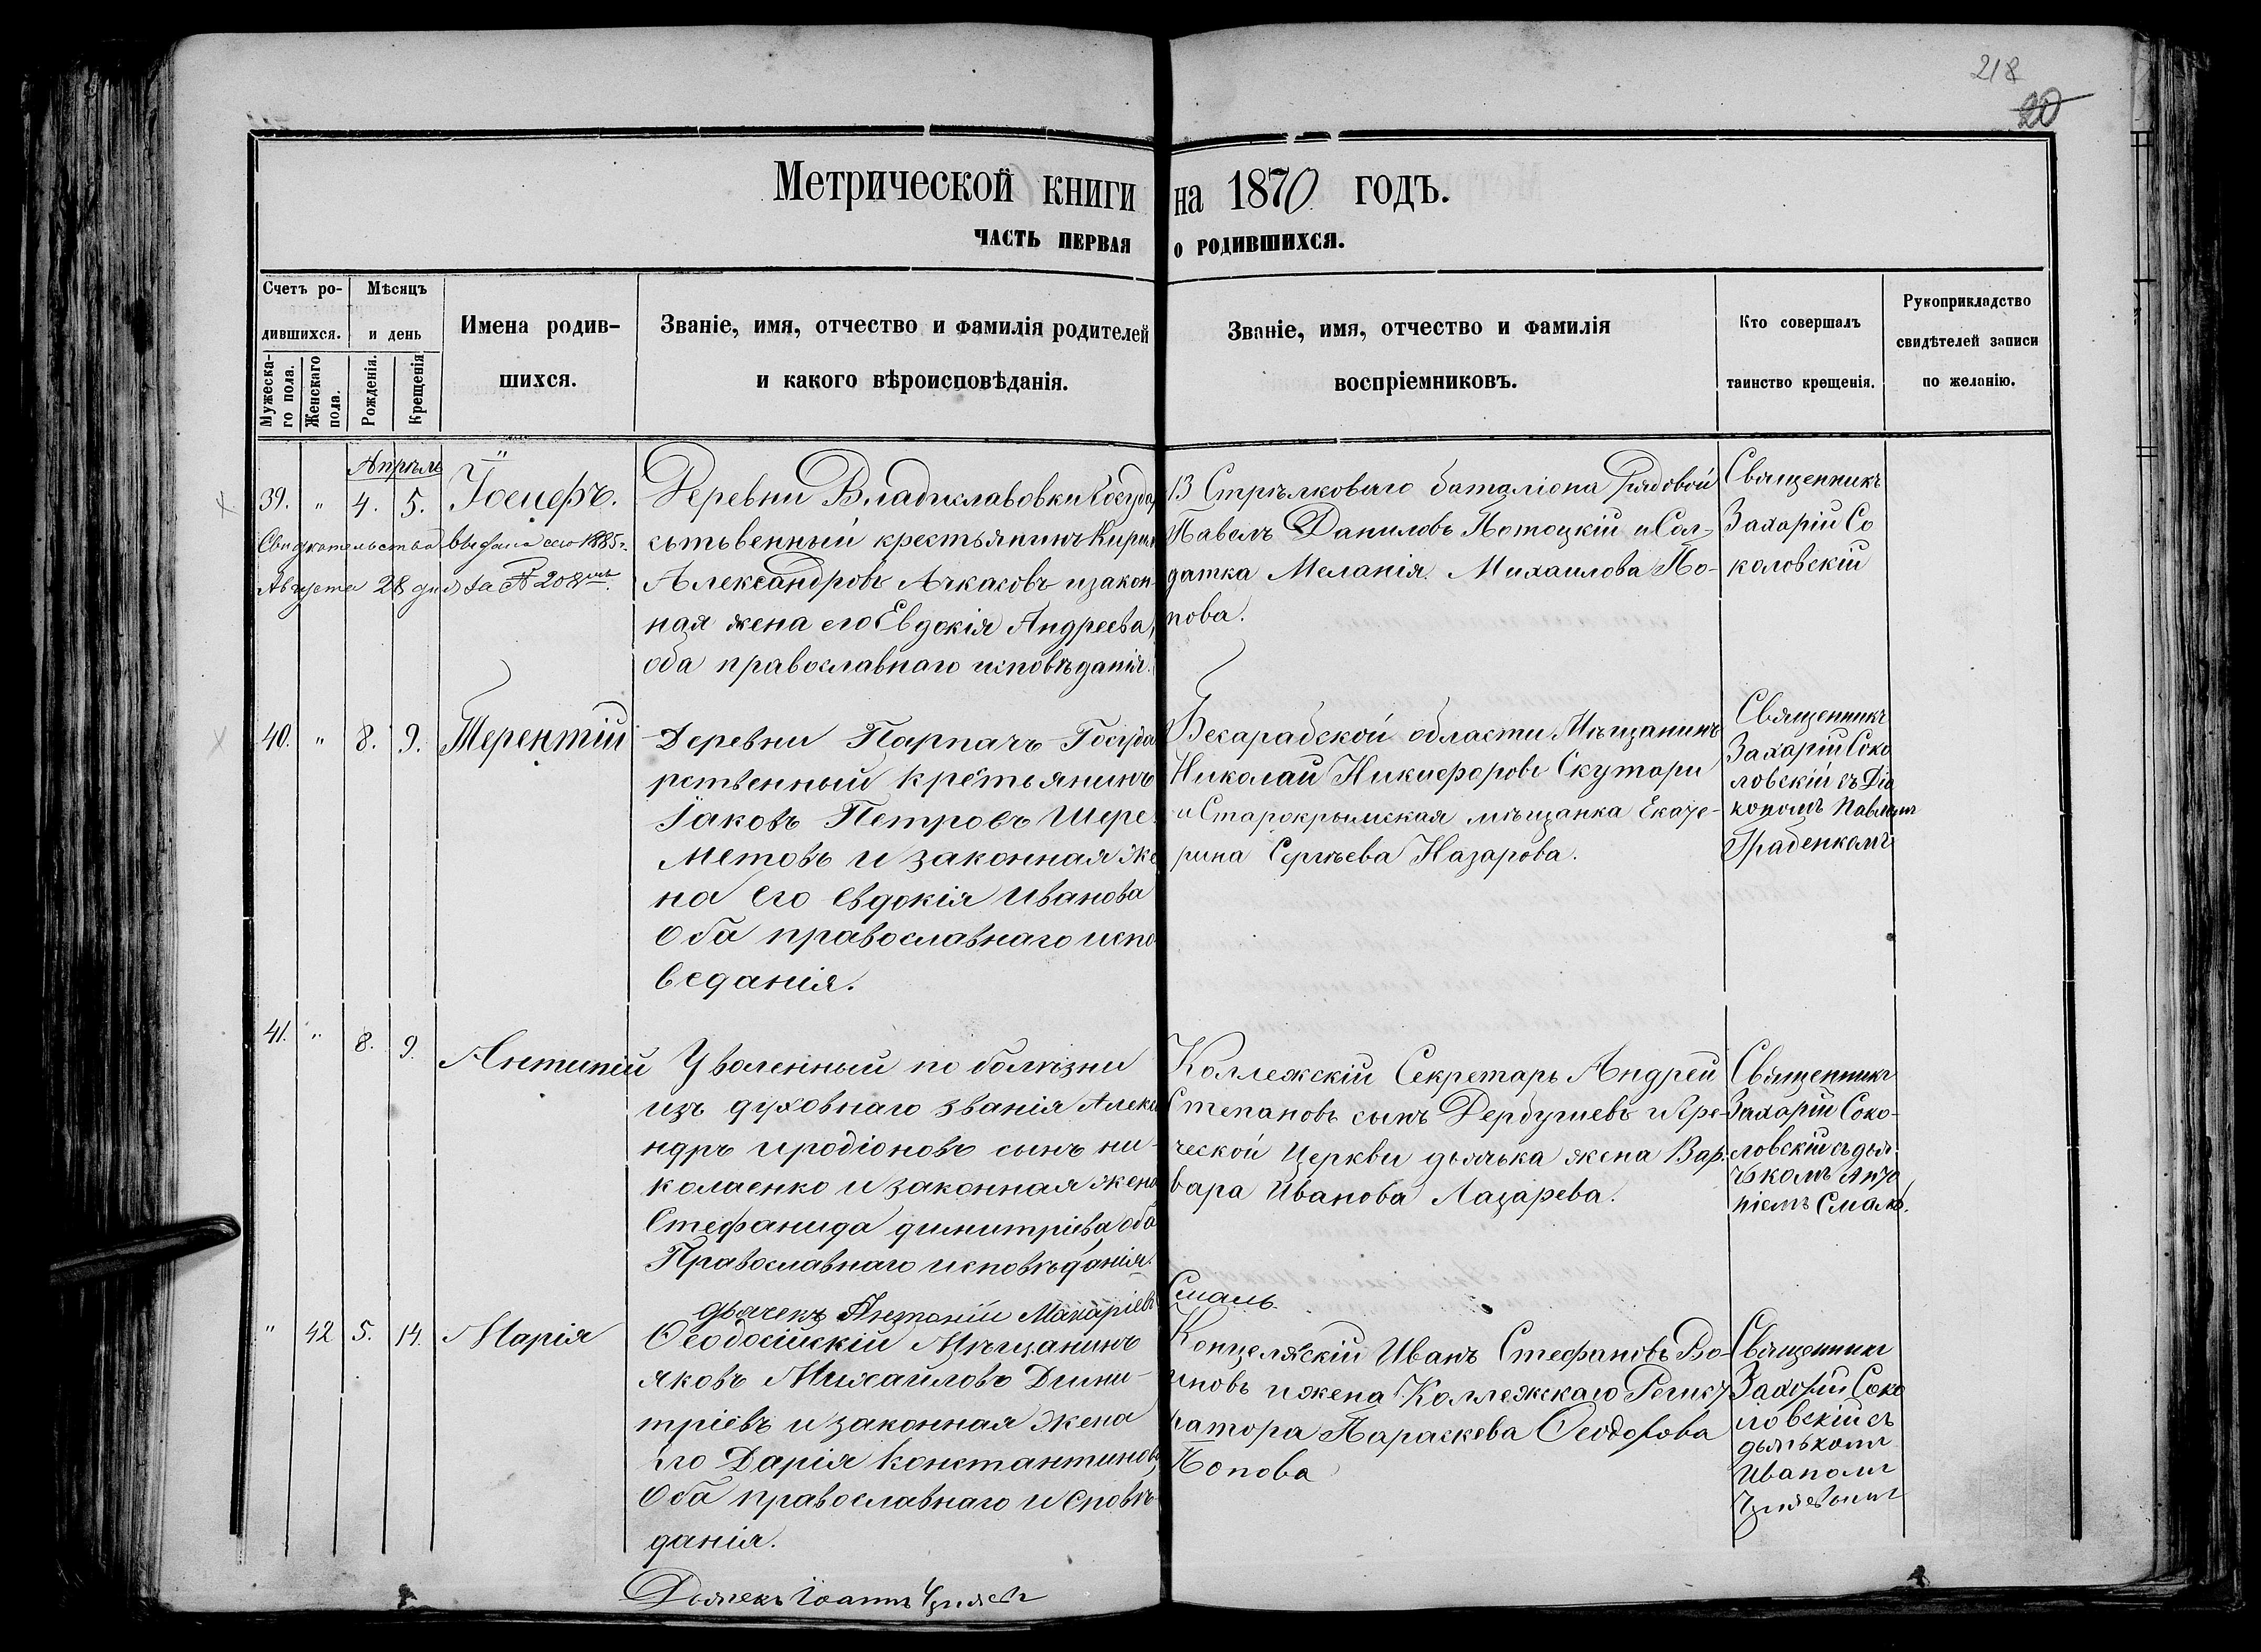 218
20
Метрической книги на 1870 годъ.
часть первая о родившихся.
Счетъ ро-
дившихся.
Мужеска-
го пола.
Женскаго
пола.
Мѣсяцъ
и день
Рожденія.
Крещенія
Имена родив-
шихся.
Званіе, имя, отчество и фамилія родителей
и какого вѣроисповѣданія.
Званіе, имя, отчество и фамилія
воспріемниковъ.
Кто совершалъ
таинство крещенія.
Рукоприкладство
свидѣтелей записи
по желанію.
Апрѣль
39. " 4. 5. Іосифъ.
Свидѣтельство выдано сего 1885 г.
Августа 28 дня за № 208
Деревни Владиславовки Госуда
сьтвенный крестьянинъ Кирил
Александровъ Ачкасовъ и закон-
ная жена его Евдокія Андреева,
оба православнаго исповѣданія.
13 Стрѣлковаго баталіона Рядовой
Павелъ Даниловъ Потоцкій и Сол-
датка Меланія Михаилова По-
пова.
Священникъ
Захарій Со
коловскій
40. " 8. 9. Терентій
Деревни Парпачъ Госуда
рственный кретьянинъ
Іаковъ Петровъ Шере
метовъ и законная же
на его Евдокія Иванова
Оба православнаго испо
веданія.
Бесарабской области Мѣщанинъ
Николай Никифоровъ Скутари
и Старокрымская мѣщанка Екате-
рина Сергѣева Назарова.
Священникъ
Захарій Соко
ловскій съ Діа
кономъ Павломъ
Граденкомъ
41. " 8. 9. Антипій
Уволенный по болѣзни
изъ духовнаго званія Алекса
ндръ Иродіоновъ сынъ Ни-
колаенко и законная жена
Стефанида Димитріева оба
Православнаго исповѣданія.
Дьячекъ Антоній Макаріевъ
Смаль.
Коллежскій Секретарь Андрей
Степановъ сынъ Дербушевъ и Гре-
ческой Церкви дьячька жена Вар-
вара Иванова Лазарева.
Священникъ
Захарій Соко-
ловскій съ дья-
чькомъ Анто
ніемъ Смаль.
" 42 5. 14. Марія
Ѳеодосійскій Мѣщанинъ
Яковъ Михаиловъ Дими-
тріевъ и законная жена
его Дарія Константинова
Оба православнаго исповѣ-
данія.
Дьячекъ Іоаннъ
Иванъ Стефановъ Во-
иновъ и жена Коллежскаго Регист
ратора Параскева Ѳеодорова
Попова
Священникъ
Захарій Соко
ловскій съ
дьячькомъ
Иваномъ